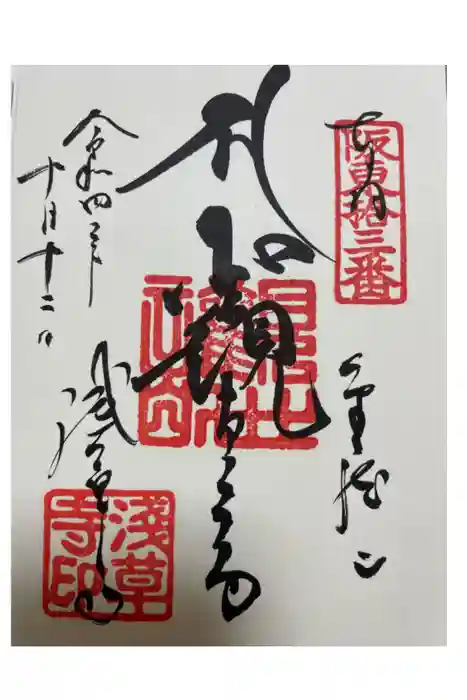 奉拝
坂東拾三番
金龍山
聖観世音
令和四年
十月十二日
浅草寺
浅草
寺印